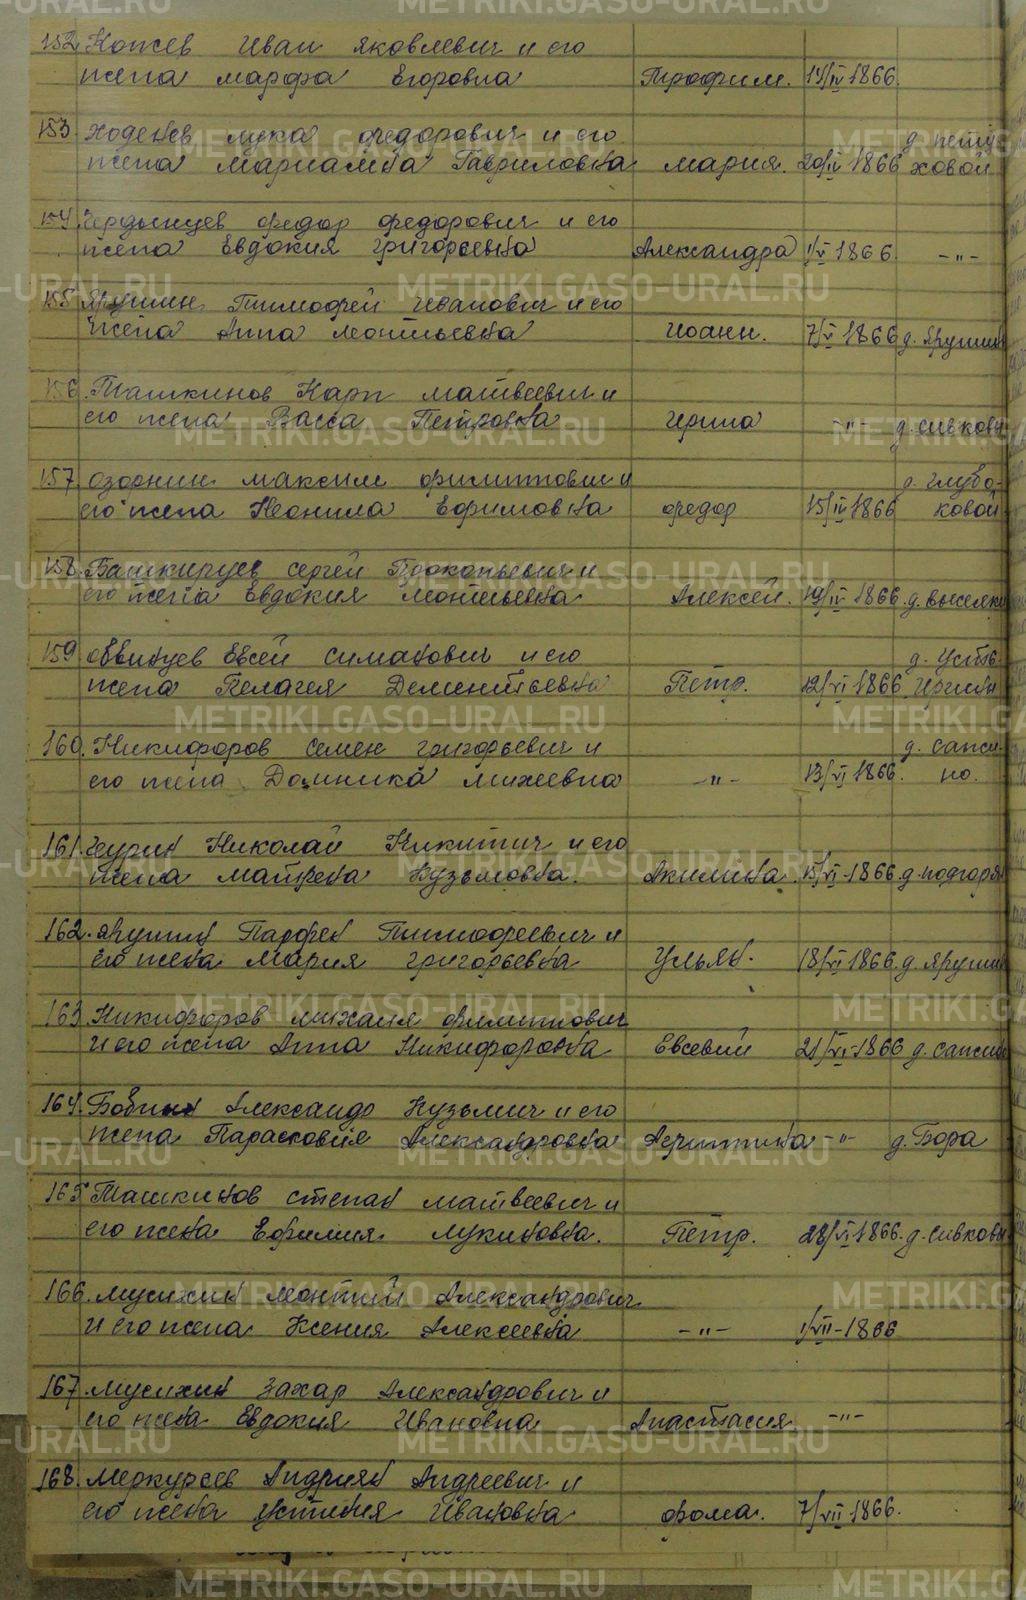 152 Кожев Иван Яковлевич и его
жена Марфа Егоровна Трофим. 14/IV 1866.
153 Ходенев Лука Федорович и его д. Пету
жена Мариамна Гавриловна Мария. 20/IV 1866 ховой
154. Чердынцев Федор Федорович и его
жена Евдокия Григорьевна Александра 1/V 1866. -"-
155 Ярушин Тимофей Иванович и его
жена Анна Леонтьевна Иоанн. 7/V 1866 д. Ярушин
156. Ташкинов Карп Матвеевич и
его жена Васса Петровна Ирина -"- д. Сивковы
157 Озорнин Максим Филиппович и д. Глубо-
его жена Неонила Ефимовна Федор 15/IV 1866 ковой
158. Башкирцев Сергей Прокопьевич и
его жена Евдокия Леонтьевна Алексей. 19/IV 1866. д. Выселки
159. Евсей Симанович и его д. Усть-
жена Пелагея Дементьевна Петр. 12/VI 1866 Иргины
160. Никифоров Семен Григорьевич и д. Сапси
его жена Домника Михеевна -"- 13/VI 1866. но.
161. Чурин Николай Никитич и его
жена Матрена Кузьмовна. Акилина. 15/VI-1866 д. Подгоря
162. Ярушин Парфен Тимофеевич и
его жена Мария Григорьевна Ульян. 18/VI 1866 д. Ярушин
163 Никифоров Михаил Филиппович
и его жена Анна Никифоровна Евсевий 21/VI-1866 д. Сапсин
164. Бобин Александр Кузьмич и его
жена Парасковия Александровна Агриппина -"- д. Бора
165 Ташкинов Степан Матвеевич и
его жена Ефимия Лукиновна. Петр. 28/VI 1866. д. Сивковы
166. Мусихин Леонтий Александрович
и его жена Ксения Алексеевна -"- 1/VII-1866
167. Мусихин Захар Александрович и
его жена Евдокия Ивановна Анастасия -"-
168. Меркурьев Андриян Андреевич и
его жена Устиния Ивановна Фома. 7/VII 1866.
METRIKI.GASO-URAL.RU